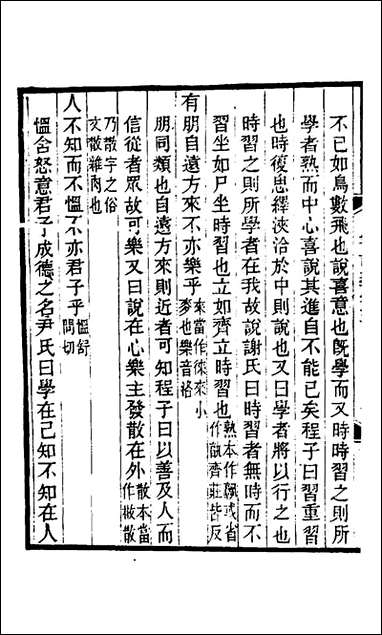 不已如鳥數飛也說喜意也旣學而又時時習之則所
學者熟而中心喜說其進自不能已矣程子曰習重習
也時復思繹浹洽於中則說也又曰學者將以行之也
時習之則所學者在我故說謝氏曰時習者無時而不
習坐如尸坐時習也立如齊立時習也熟本作 或省作 齊莊皆反
有朋自遠方來不亦樂乎來當作徠來小麥也樂音洛
朋同類也自遠方來則近者可知程子曰以善及人而
信從者眾故可樂又曰說在心樂主發散在外散本當作 散
乃 字之俗文散雜肉也
人不知而不慍不亦君子乎慍紆問切
慍含怒意君子成德之名尹氏曰學在己知不知在人